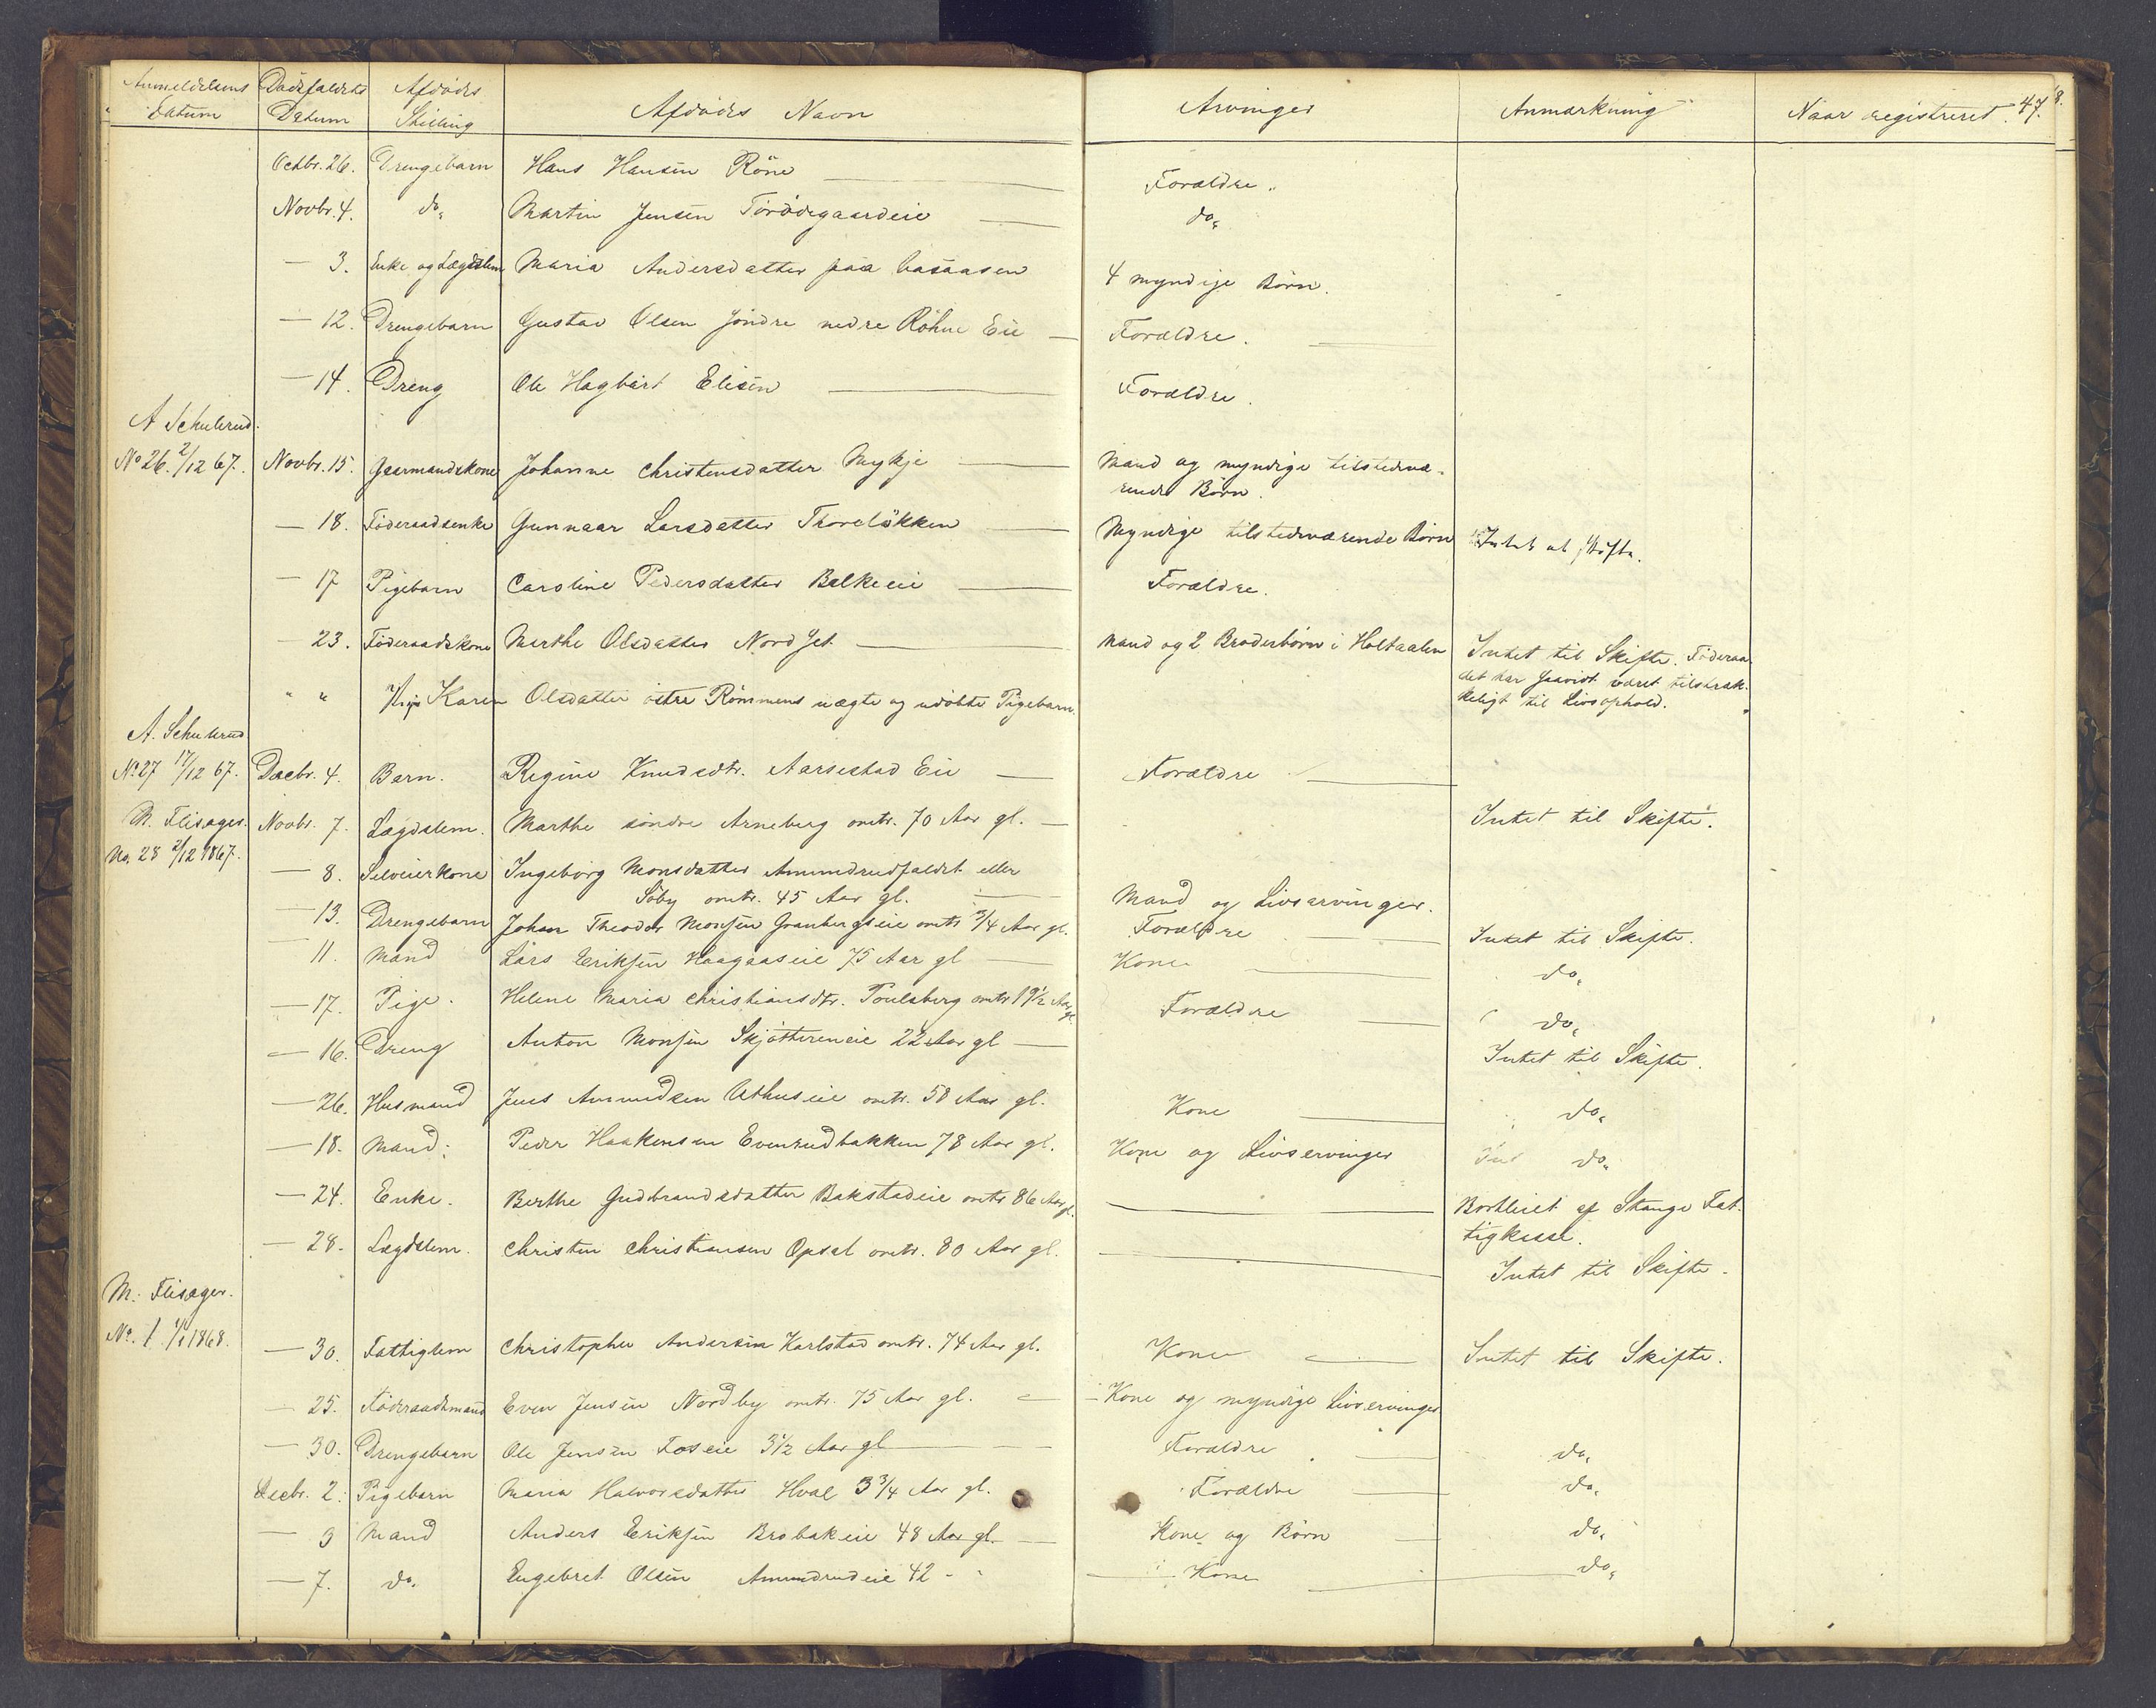 Anmeldelsens Datum Dødsfaldets Datum Afdødes Stilling Afdødes Navn Arvinger Anmærkning Naar registreret. 47.
Octbr. 26. Drengebarn Hans Hansen Röne Forældre.
Novbr. 4. do. Martin Jensen Torödegaardeie do.
— 3. Enke og Lægdslem Maria Andersdatter paa 4 myndige Børn.
— 12. Drengebarn Gustav Olsen Jöndre nedre Röhne Eie — Forældre.
— 14. Dreng Ole Hagbart Elisen Forældre.
A Schulerud.
No 26. 2/12 67. Novbr. 15. Gaarmandskone Johanne Christensdatter Mykje Mand og myndige tilstedvæ-
rende Børn.
— 18. Föderaadsenke Gunnaar Larsdatter Thorelökken Myndige tilstedværende Børn Intet at skifte.
— 17 Pigebarn Caroline Pedersdatter Balkeeie Forældre.
— 23. Föderaadskone Marthe Olsdatter Nord Jet Mand og 2 Broderbørn i Holtaalen Intet til Skifte. Föderaa-
det har havist været tilstræk-
keligt til Livsophold.
" " Pige Karen Olsdatter östre Römmens uægte og udöbte Pigebarn.
A. Schulerud
No 27 17/12 67. Decbr. 4. Barn. Regine Knudsdtr. Aarsestad Eie — Forældre
M. Flisager. Novbr. 7. Lægdslem. Marthe söndre Arneberg omtr. 70 Aar gl. — Intet til Skifte.
No. 28 2/12 1867.
— 8. Selveierkone Ingeborg Monsdatter Amundrudfaldet eller
Söby omtr. 45 Aar gl. Mand og Livsarvinger.
— 13. Drengebarn Johan Theodor Monsen Granbergseie omtr 3/4 Aar gl. Forældre Intet til Skifte.
11. Mand Lars Eriksen Haagaaseie 75 Aar gl Kone do.
— 17. Pige. Helene Maria Christiansdtr. Poulsberg omtr 19 1/2 Aar gl. Forældre do.
— 16. Dreng Anton Monsen Skjöttereneie 22 Aar gl — Intet til Skifte.
— 26. Husmand Jens Amundsen Uthuseie omtr. 58 Aar gl. Kone do.
— 18. Mand. Peder Haakensen Evenrudbakken 78 Aar gl. Kone og Livservinger do.
— 24. Enke. Berthe Gudbrandsdatter Bakstadeie omtr 86 Aar gl. Bortleiet af Stange Fat-
tigkasse.
— 28. Lægdslem. Christen Christiansen Opsal omtr. 80 Aar gl. Intet til Skifte.
M. Flisager.
No. 1 1/1 1868.
— 30. Fattiglem Christopher Andersen Karlstad omtr. 74 Aar gl. Kone Intet til Skifte.
— 25. Föderaadsmand Even Jensen Nordby omtr. 75 Aar gl. Kone og myndige Livservinger
— 30. Drengebarn Ole Jensen Foseie 3 1/2 Aar gl Forældre do.
Decbr. 2. Pigebarn Maria Halvorsdatter Hval 3 3/4 Aar gl. Forældre do.
— 3 Mand Anders Eriksen Brobakeie 48 Aar gl. Kone og Børn do.
— 7. do. Engebret Olsen Amundrudeie 42 - " Kone do.